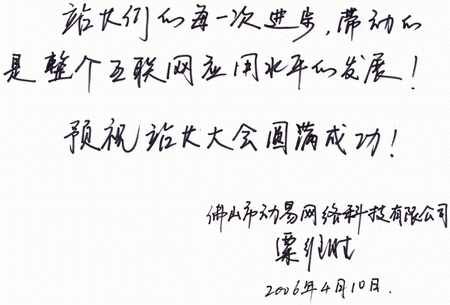 站长们的每一次进步,带动的
是整个互联网应用水平的发展!
预祝站长大会圆满成功!
佛山市动易网络科技有限公司
粟维胜
2006年4月10日.